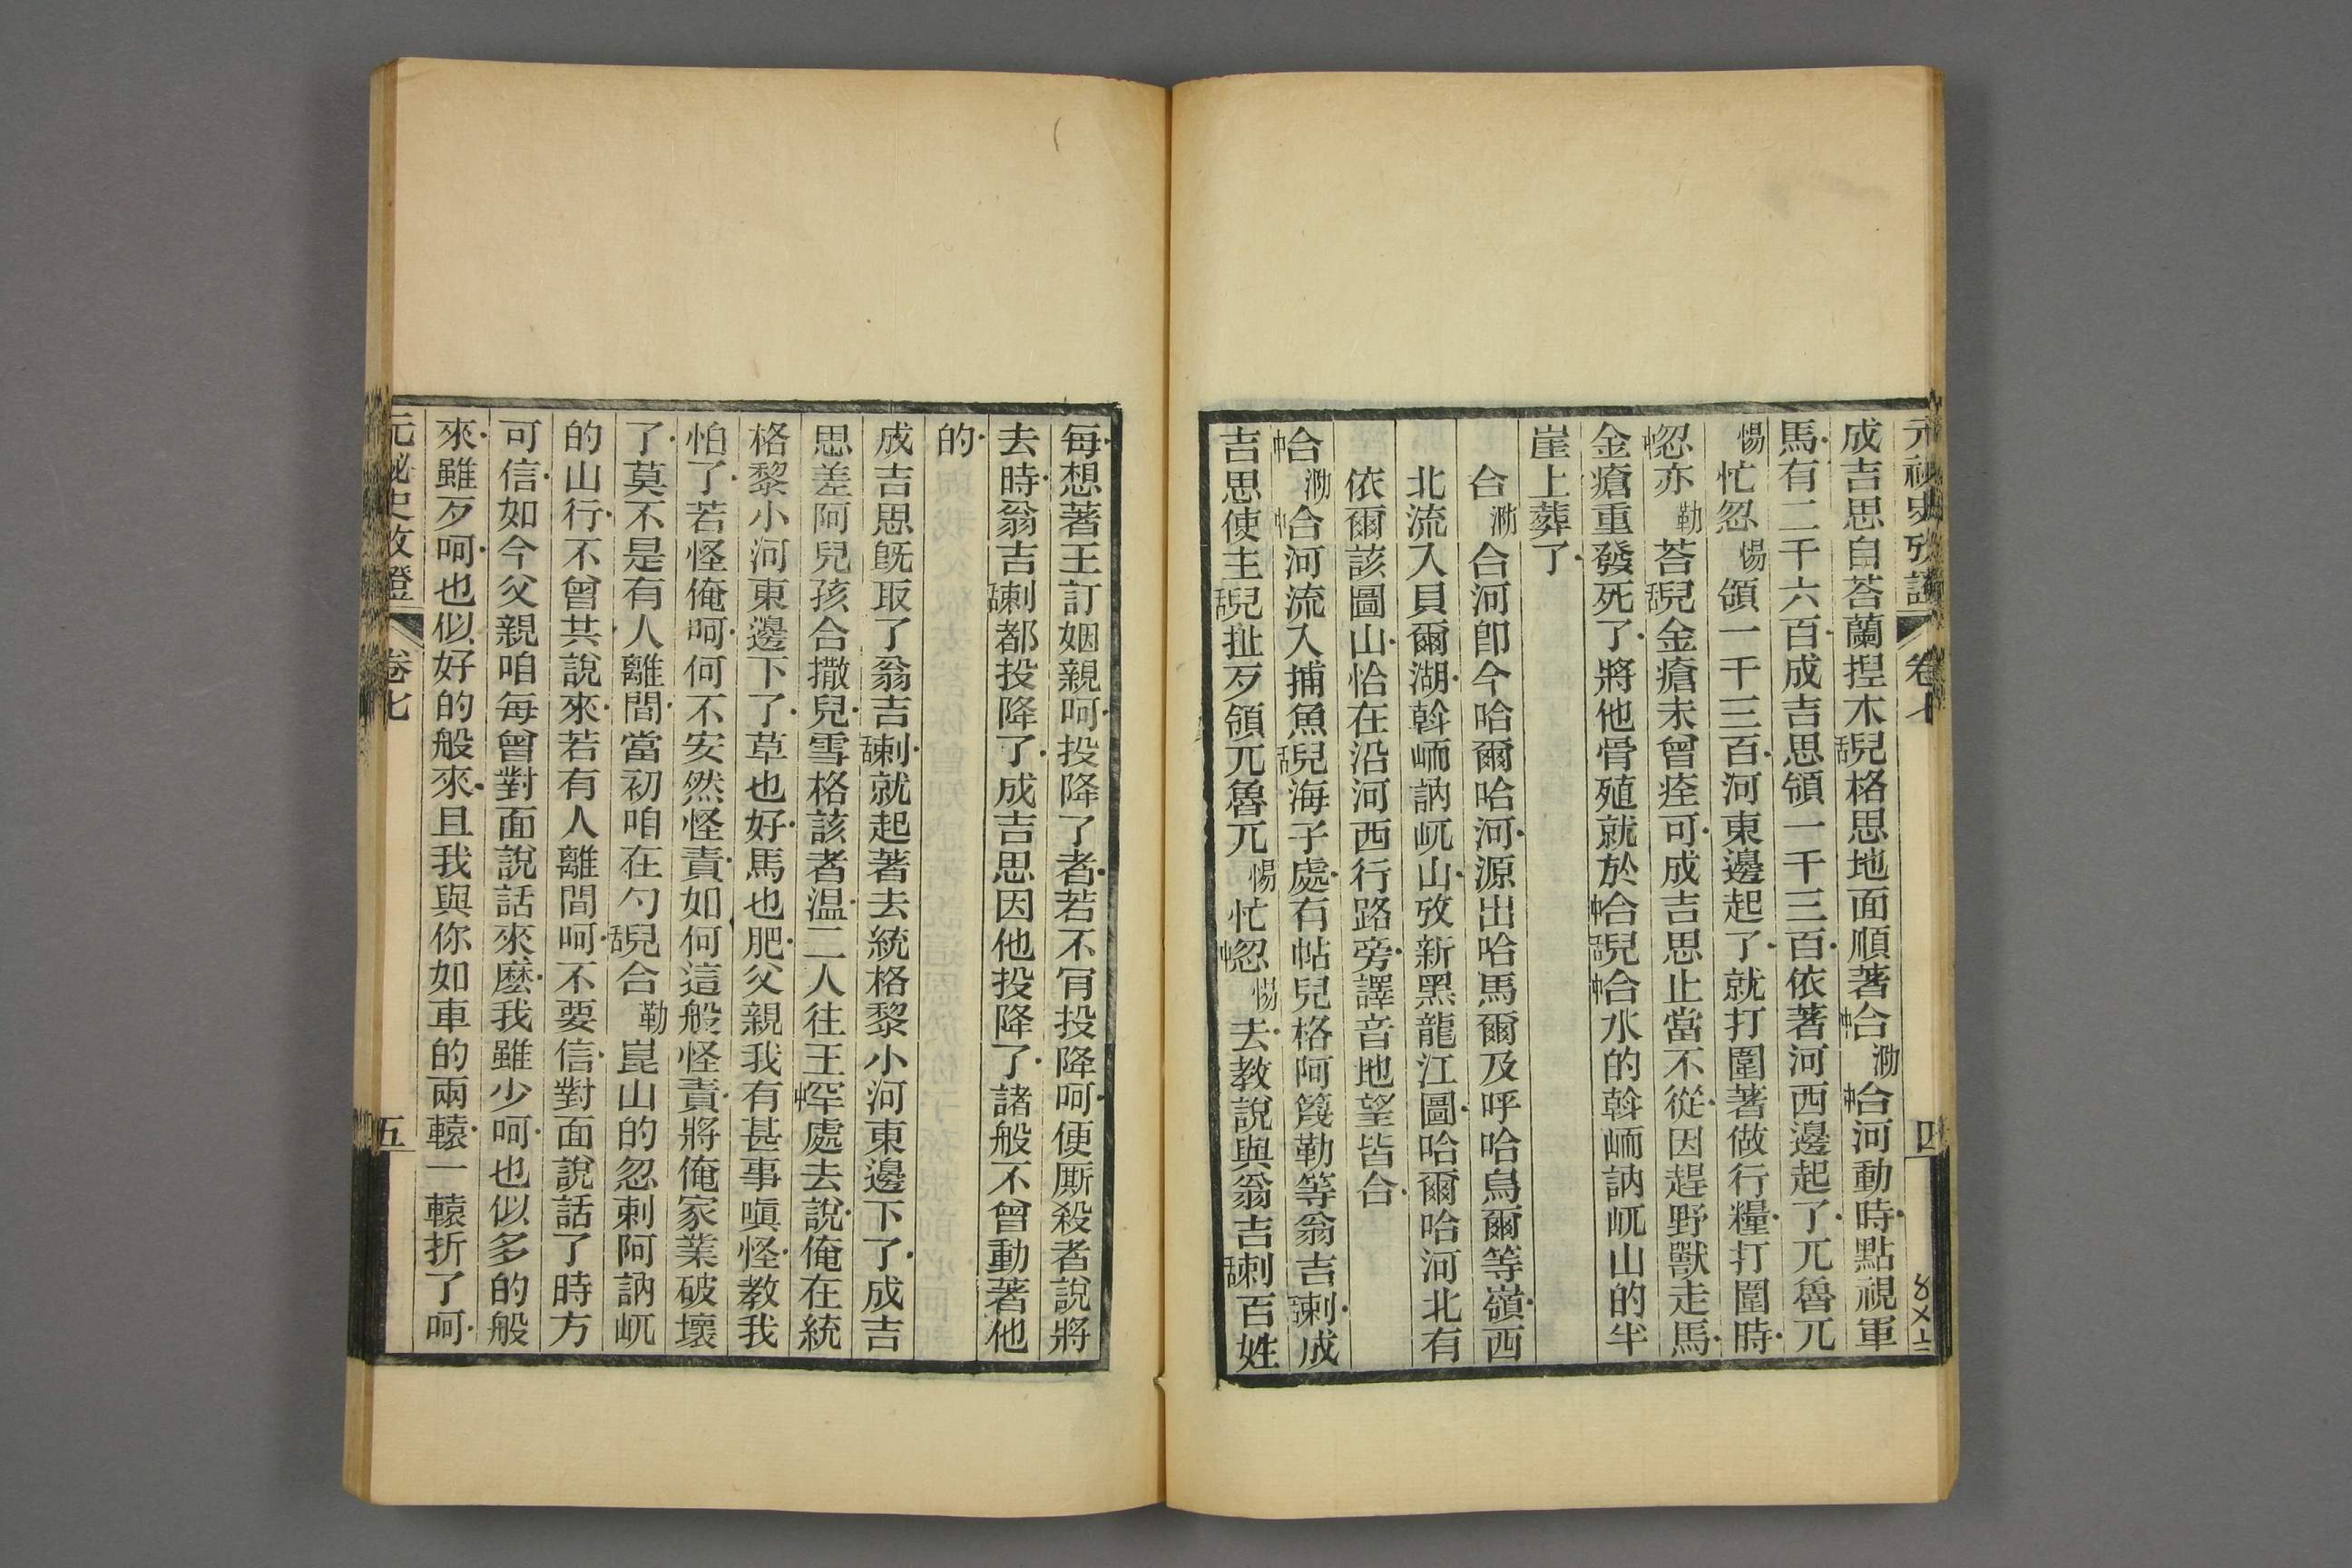 元祕史攷證 卷七 四
成吉思自荅蘭揑木舌兒格思地面順著中合泐中合河動時點視軍
馬有二千六百成吉思領一千三百依著河西邊起了兀魯兀
惕忙忽惕領一千三百河東邊起了就打圍著做行糧打圍時
中忽亦勒荅舌兒金瘡未曾痊可成吉思止當不從因趕野獸走馬
金瘡重發死了將他骨殖就於中合舌兒中合水的斡峏訥屼山的半
崖上葬了
合泐合河卽今哈爾哈河源出哈馬爾及呼哈烏爾等嶺西
北流入貝爾湖斡峏訥屼山攷新黑龍江圖哈爾哈河北有
依爾該圖山恰在沿河西行路旁譯音地望皆合
中合泐中合河流入捕魚舌兒海子處有帖兒格阿篾勒等翁吉舌剌成
吉思使主舌兒扯歹領兀魯兀惕忙中忽惕去教說與翁吉舌剌百姓
每想著王訂姻親呵投降了者若不肎投降呵便厮殺者說將
去時翁吉舌剌都投降了成吉思因他投降了諸般不曾動著他
的
成吉思旣取了翁吉舌剌就起著去統格黎小河東邊下了成吉
思差阿兒孩合撒兒雪格該者温二人往王中罕處去說俺在統
格黎小河東邊下了草也好馬也肥父親我有甚事嗔怪教我
怕了若怪俺呵何不安然怪責如何這般怪責將俺家業破壞
了莫不是有人離間當初咱在勺舌兒合勒崑山的忽剌阿訥屼
的山行不曾共說來若有人離間呵不要信對面說話了時方
可信如今父親咱每曾對面說話來麽我雖少呵也似多的般
來雖歹呵也似好的般來且我與你如車的兩轅一轅折了呵
元祕史攷證 卷七 五